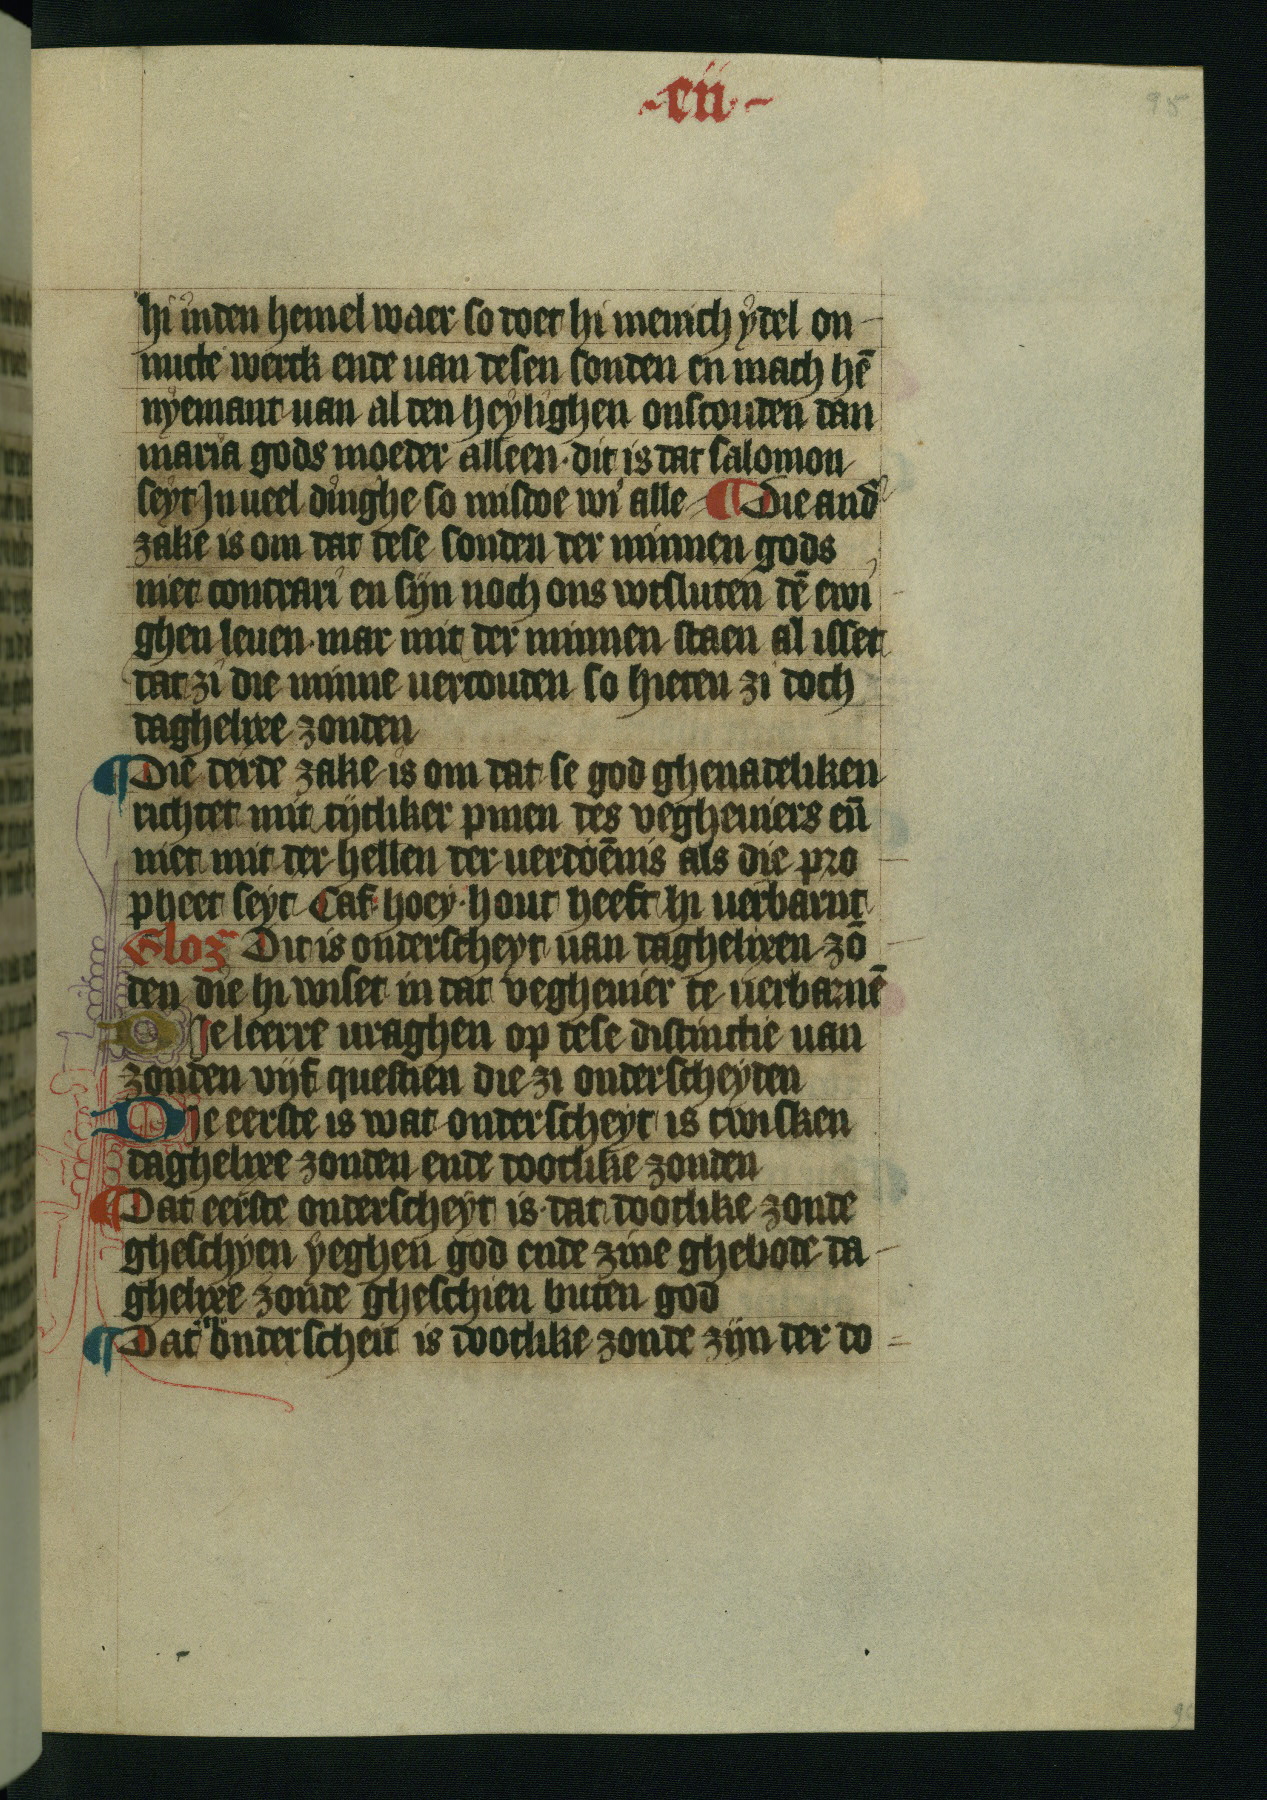 cii
95
hi inden hemel waer so doet hi menich ydel on
nutte werck ende uan desen sonden en mach hē
nyemant uan al den heylighen onscouden dan
maria gods moeder alleen · dit is dat salomon
seyt In ueel dinghe so misdoe wi alle ¶ Die and
zake is om dat dese sonden der minnen gods
niet contrari en sijn noch ons wtsluten dē ewi
ghen leuen · mar mit der minnen staen al isset
dat zi die minne uercouden so hieten zi doch
daghelixe zonden
¶ Die derde zake is om dat se god ghenadeliken
richtet mit tijtliker pinen des vegheuiers eñ
niet mit der hellen der uerdoēnis als die pro
pheet seyt Caf · hoey · hout heeft hi uerbarnt
Gloz Dit is onderscheyt uan daghelixen zō
den die hi wiset in dat vegheuier te uerbarnē
Die leerre uraghen op dese distinctie uan
zonden vijf questien die zi onderscheyden
Die eerste is wat onderscheyt is twisken
daghelixe zonden ende dootlike zonden
¶ Dat eerste onderscheyt is · dat dootlike zonde
gheschyen yeghen god ende zine ghebode da
ghelixe zonde gheschien buten god
¶ Dat onderscheit is dootlike zonde zijn der do